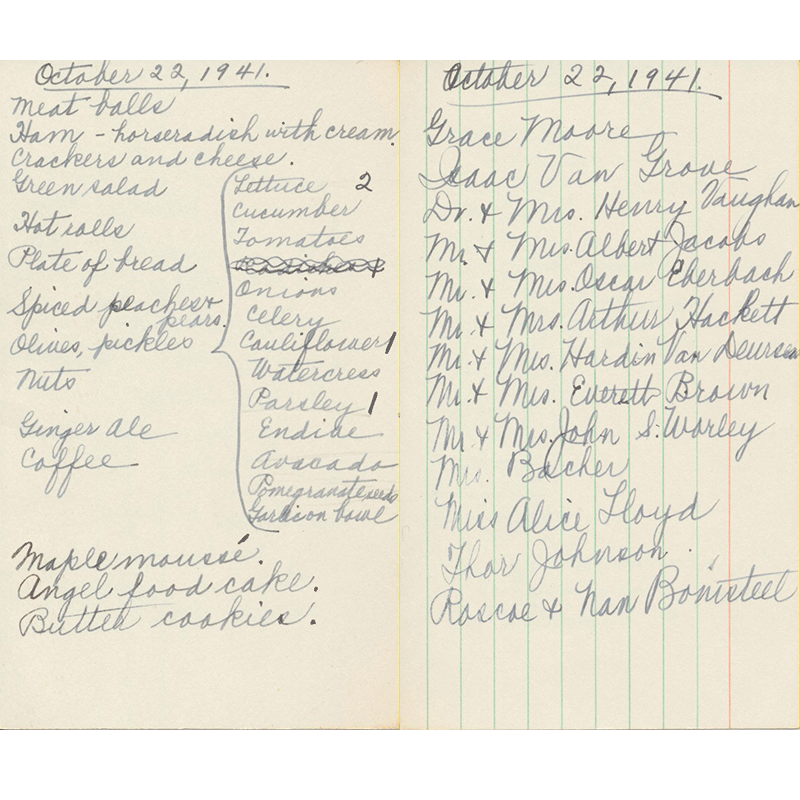 October 22, 1941.
Meat balls
Ham - horseradish with cream.
Crackers and cheese.
Green salad
Hot rolls
Plate of bread
Spiced peaches &
pears.
Olives, pickles
Nuts
Ginger Ale
Coffee
Lettuce 2
Cucumber
Tomatoes
Onions
Celery
Cauliflower 1
Watercress
Parsley 1
Endive
Avacado
Pomegranate seeds
Garlic on bowl
Maple moussé.
Angel food cake.
Butter cookies.
October 22, 1941.
Grace Moore
Isaac Van Grove
Dr. & Mrs. Henry Vaughan
Mr. & Mrs. Albert Jacobs
Mr. & Mrs. Oscar Eberbach
Mr. & Mrs. Arthur Hackett
Mr. & Mrs. Hardin Van Deursen
Mr. & Mrs. Everett Brown
Mr. & Mrs. John S. Worley
Mrs. Bacher
Miss Alice Lloyd
Thor Johnson.
Roscoe & Nan Bonisteel